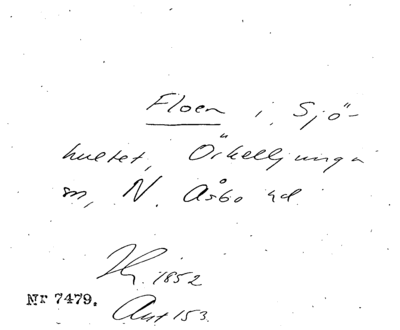 Floen i Sjö-
hultet, Örkelljunga
sn, N. Åsbo hd
1852
Nr 7479.
Ant 153.